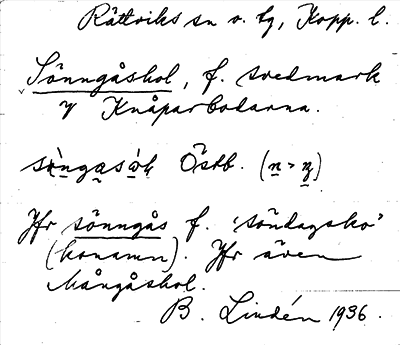 Rättviks sn o. tg, Kopp. l.
Sönngåshol, f. svedmark
Knåparbodarna.
Östb. (n >
Jfr sönngås f. 'söndagsko'
(konamn). Jfr även
Mångåshol.
B. Lindén 1936.